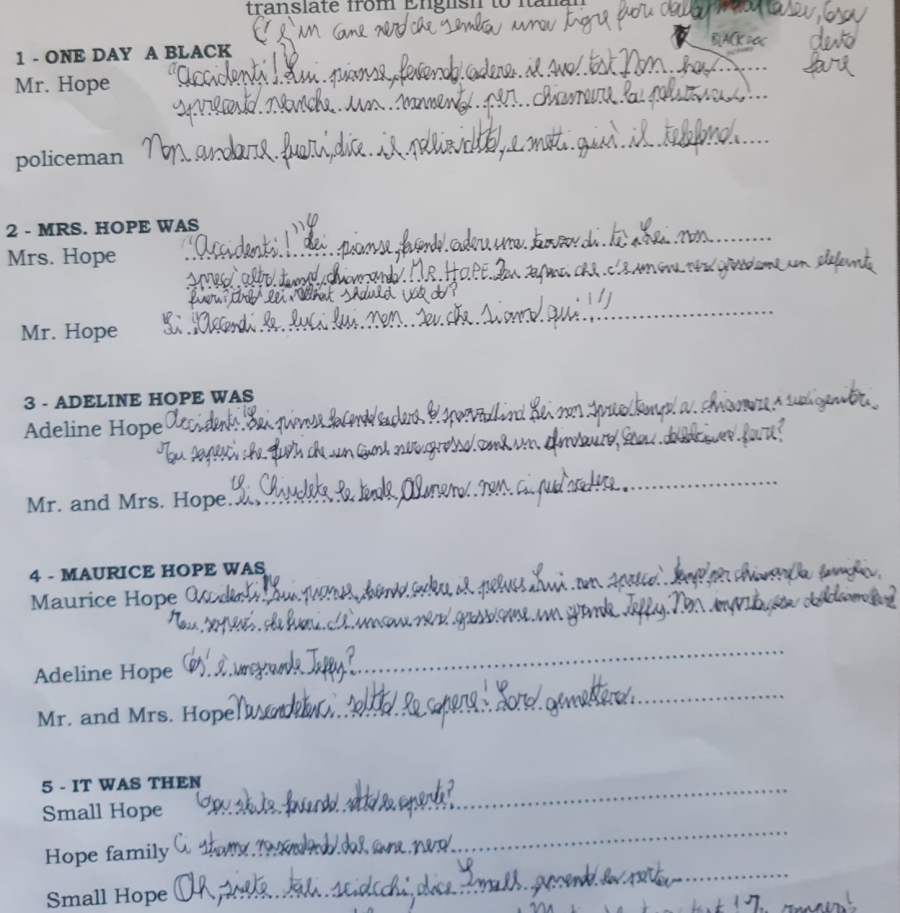 translate from English to Italian
C'è in cane nero che semba una tigre fuori dalla mia casa, Cosa
devo
fare
BLACK DOG
1 - ONE DAY A BLACK
Mr. Hope "Accidenti! Lui pianse, facendo cadere il suo tost Non ha
sprecato neanche un momento per chiamare la polizia
policeman Non andare fuori, dice il poliziotto, e metti giù il telefono.
2 - MRS. HOPE WAS
Mrs. Hope "Accidenti!" Lei pianse, facendo cadere una tazza di tè. Lei non
sprecò altro tempo chiamando MR HOPE. Tu sapevi che c'è un cane nero grosso come un elefante
fuori? lei. What should we do?
Mr. Hope Si "Accendi le luci lui non sa che siamo qui!"
3 - ADELINE HOPE WAS
Adeline Hope Accidenti! Lei pianse facendo cadere lo spazzolino Lei non sprecò tempo a chiamare i suoi genitori.
Tu sapevi che fuori che un cane nero grosso come un dinosauro, cosa dobbiamo fare?
Mr. and Mrs. Hope Si, Chiudete le tende, Almeno non ci può vedere.
4 - MAURICE HOPE WAS
Maurice Hope Accidenti! Lui pianse, facendo cadere il peluce. Lui non sprecò tempo per chiamare la famiglia.
Tu sapevi che fuori c'è un cane nero grosso come un grande Jeffy. Non importa, cosa dobbiamo fare?
Adeline Hope Cos' è un grande Jeffy?
Mr. and Mrs. Hope Nascondetevi sotto le coperte! Loro gemettero.
5 - IT WAS THEN
Small Hope Cosa state facendo sotto le coperte?
Hope family Ci stiamo nascondendo dal cane nero
Small Hope Oh, siete tali sciocchi, dice Small aprendo la porta